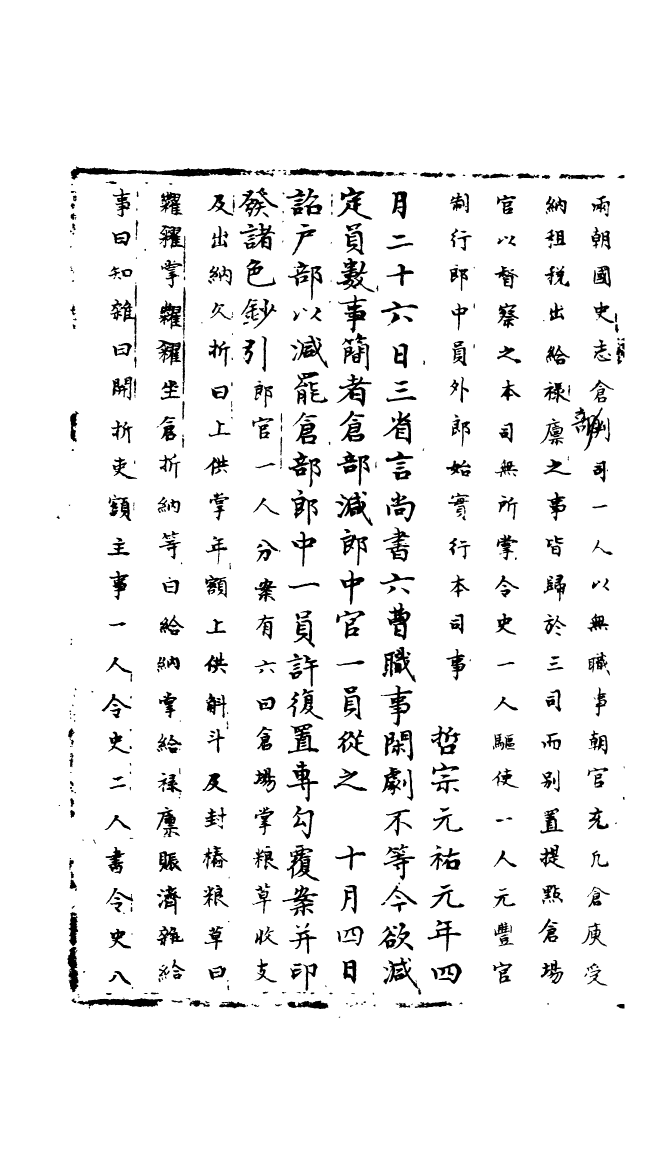 兩朝國史志倉部判司一人以無職事朝官充凡倉庾受
納租稅出給祿廪之事皆歸於三司而別置提點倉場
官以督察之本司無所掌令史一人驅使一人元豐官
制行郎中員外郎始實行本司事　哲宗元祐元年四
月二十六日三省言尚書六曹職事閑劇不等今欲減
定員數事簡者倉部減郎中官一員從之　十月四日
詔戶部以減罷倉部郎中一員許復置專勾覆案并印
發諸色鈔引郎官一人分案有六曰倉場掌粮草收支
及出納欠折曰上供掌年額上供斛斗及封樁粮草曰
糶糴掌糶糴坐倉折納等曰給納掌給祿廪賑濟雜給
事曰知雜曰開折吏額主事一人令史二人書令史八